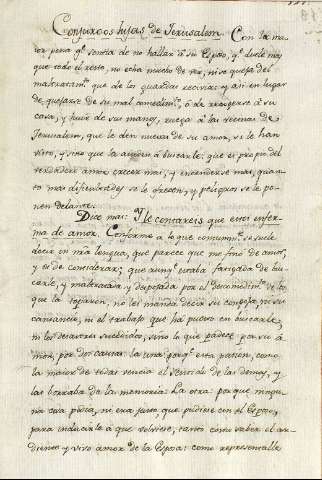 Conjuroos hijas de Jerusalem. Con la ma-
ior pena qe. sentia de no hallar à su Esposo, qe. duele mas
que todo el resto, no echa mucho de ver, ni se queja del
maltratamto. que de los guardas recivio; y asi en lugar
de quejarse de su mal comedimto. ò de recogerse à su
casa, y huir de sus manos, ruega à las vecinas de
Jerusalem, que le den nuevas de su amor, si le han
visto, y sino que la ayuden à buscarle; que es propio del
verdadero amor crecer mas, y encenderse mas, quan-
to mas dificultades se le ofrecen, y peligros se le po-
nen delante.
Dice mas: Y le contareis que estoi enfer-
ma de amor. Conforme a lo que comunmte. se suele
decir en nra lengua, que parece que me fino de amor,
y es de considerar; que aunqe. estaba fatigada de bus-
carle, y maltratada, y despojada por el descomedimto. de los
que la toparon, no les manda decir su congoja, ni su
cansancio, ni el trabajo que ha puesto en buscarle,
ni los desastres sucedidos, sino lo que padece por su a-
mor, por dos causas: la una: porqe. esta pasion, como
la maior de todas vencia el sentido de las demas, y
las borraba de la memoria: La otra: porque ningu-
na cosa podia, ni era justo, que pudiese con el Esposo,
para inducirle à que volviese, tanto como saber el ar-
diente y vivo amor de la Esposa: como representalle